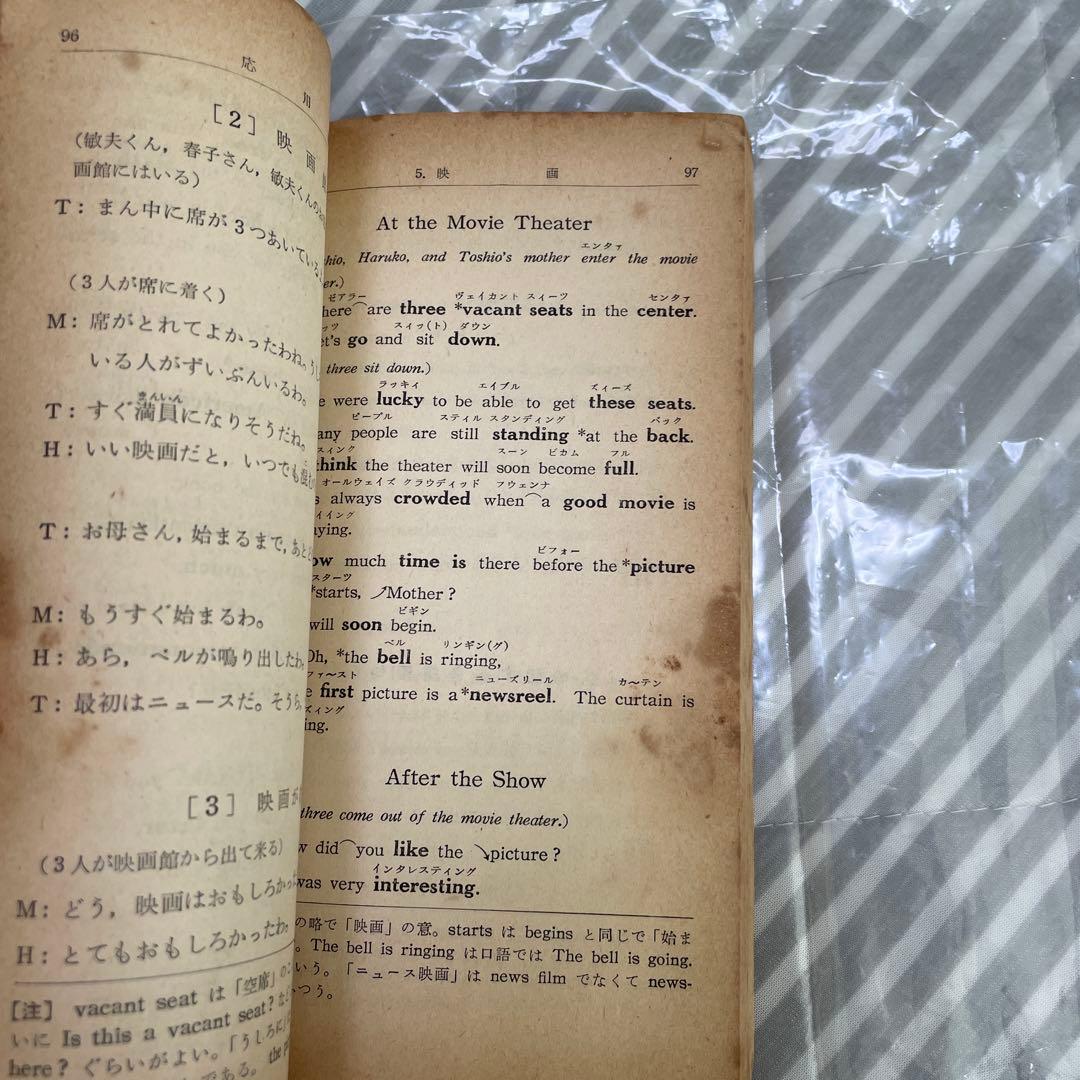 96
応用
[2] 映画
(敏夫くん，春子さん，敏夫くんの
画館にはいる)
T: まん中に席が3つあいている
(3人が席に着く)
M: 席がとれてよかったわね。うし
いる人がずいぶんいるわ。
まんいん
T: すぐ満員になりそうだね。
H: いい映画だと，いつでも
T: お母さん，始まるまで，あと
M: もうすぐ始まるわ。
H: あら，ベルが鳴り出したわ
T: 最初はニュースだ。そうら，
[3] 映画が
(3人が映画館から出て来る)
M: どう，映画はおもしろかった
H: とてもおもしろかったわ。
[注] vacant seat は「空席」のこ
いに Is this a vacant seat? など
here? ぐらいがよい。「うしろに」
である。 the
5. 映画 97
At the Movie Theater
エンタァ
hio, Haruko, and Toshio's mother enter the movie
er.)
ゼアラー ヴェイカント スィーツ センタァ
here are three *vacant seats in the center.
ッツ スィッ(ト) ダウン
t's go and sit down.
three sit down.)
ラッキイ エイブル ズィーズ
e were lucky to be able to get these seats.
ピープル スティル スタンディング バック
any people are still standing *at the back.
スィンク スーン ビカム フル
think the theater will soon become full.
オールウェイズ クラウディッド フウェンナ
s always crowded when a good movie is
イイング
aying.
ビフォー
ow much time is there before the *picture
スターツ
*starts, Mother?
ビギン
will soon begin.
ベル リンギン(グ)
Oh, *the bell is ringing,
ファ〜スト ニューズリール カ〜テン
e first picture is a *newsreel. The curtain is
ズィング
ing.
After the Show
three come out of the movie theater.)
w did you like the picture?
インタレスティング
was very interesting.
の略で「映画」の意。starts は begins と同じで「始ま
。The bell is ringing は口語では The bell is going.
いう。「ニュース映画」は news film でなくて news-
つう。